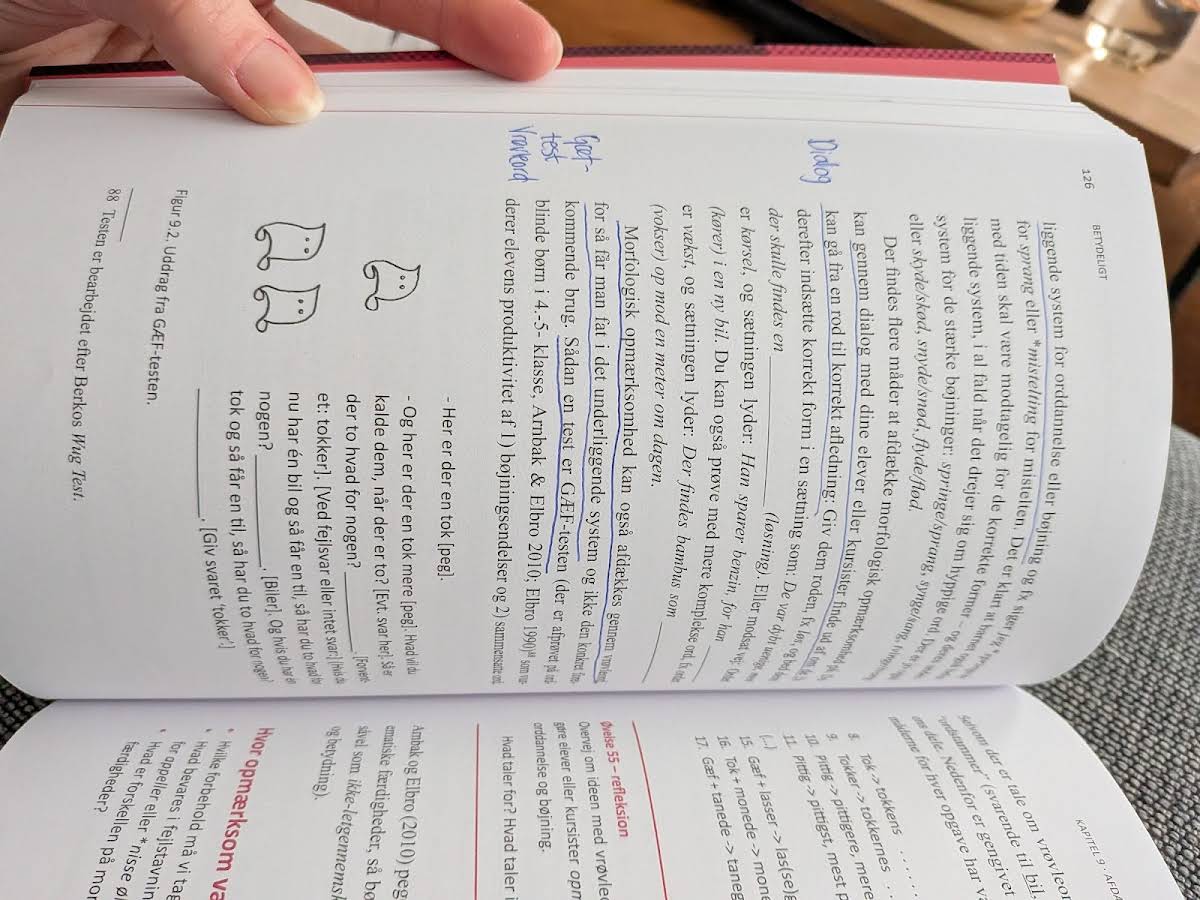 126
BETYDELIGT
liggende system for orddannelse eller bøjning og fx siger jeg
for sprang eller *mistelting for mistelten. Det er klart at børn
med tiden skal være modtagelig for de korrekte former – og
liggende system, i al fald når det drejer sig om hyppige ord.
system for de stærke bøjninger: springe/sprang, synge/sang,
eller skyde/skød, snyde/snød, flyde/flød.
Der findes flere måder at afdække morfologisk opmærksomhed på.
kan gennem dialog med dine elever eller kursister finde ud af om de
kan gå fra en rod til korrekt afledning: Giv dem roden, fx løs, og bed dem
derefter indsætte korrekt form i en sætning som: De var dybt uenige, men
der skulle findes en ________ (løsning). Eller modsat vej: Ordet
er kørsel, og sætningen lyder: Han sparer benzin, for han ____
(kører) i en ny bil. Du kan også prøve med mere komplekse ord, fx
er vækst, og sætningen lyder: Der findes bambus som ______
(vokser) op mod en meter om dagen.
Morfologisk opmærksomhed kan også afdækkes gennem vrøvleord
for så får man fat i det underliggende system og ikke den konkret
kommende brug. Sådan en test er GÆF-testen (der er afprøvet på
blinde børn i 4.-5- klasse, Arnbak & Elbro 2010; Elbro 1990)88 som
derer elevens produktivitet af 1) bøjningsendelser og 2) sammensatte ord.
Dialog
Gæf-
test
Vrøvleord
- Her er der en tok [peg].
- Og her er der en tok mere [peg]. Hvad vil du
kalde dem, når der er to? [Evt. svar her!, så er
der to hvad for nogen? ________. [Forvent-
et: tokker]. [Ved fejlsvar eller intet svar:] Hvis du
nu har én bil og så får en til, så har du to hvad for
nogen? ________. [Biler]. Og hvis du har én
tok og så får en til, så har du to hvad for nogen?
________. [Giv svaret 'tokker'.]
Figur 9.2. Uddrag fra GÆF-testen.
88 Testen er bearbejdet efter Berkos Wug Test.
KAPITEL 9 · AFDÆ
Selvom det er tale om vrøvleor
"ordsummer" (svarende til bil,
ens dele. Nedenfor er gengivet
måderne for hver opgave har væ
8. Tok -> tokkens
9. Tokker -> tokkernes
10. Pittig -> pittigere, mere
11. Pittig -> pittigst, mest p
(...)
15. Gæf + lasser -> las(se)g
16. Tok + monede -> mone
17. Gæf + tanede -> taneg
Øvelse 55 – refleksion
Overvej om ideen med vrøvleo
gøre elever eller kursister opm
orddannelse og bøjning.
Hvad taler for? Hvad taler i
Arnbak og Elbro (2010) peg
ematiske færdigheder, så bø
såvel som ikke-letgennemsk
og betydning).
Hvor opmærksom va
• Hvilke forbehold må vi tag
• Hvad bevares i fejlstavnin
for oppeller eller *nisse øl
• Hvad er forskellen på mor
færdigheder?